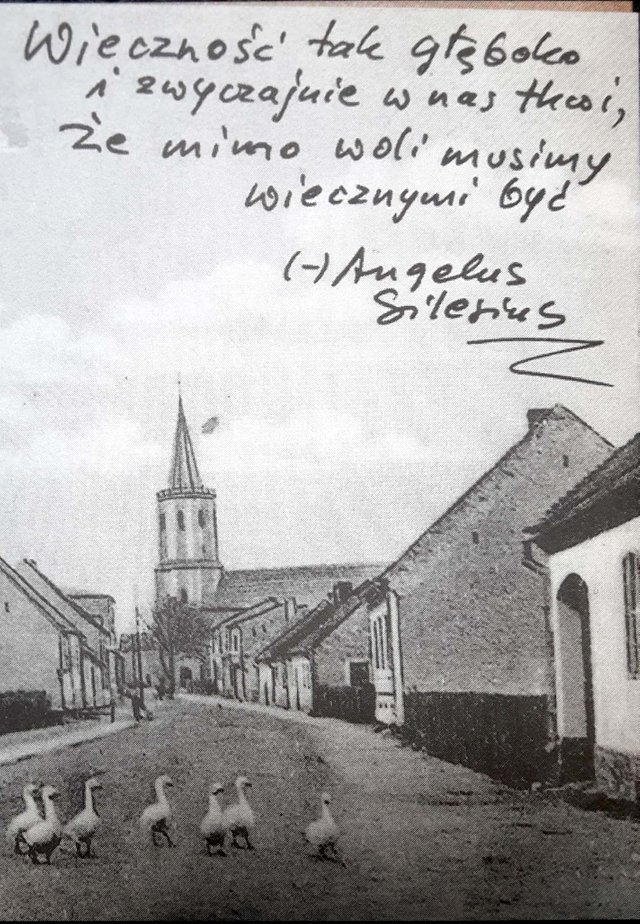 Wieczność tak głęboko
i zwyczajnie w nas tkwi,
Że mimo woli musimy
wiecznymi być
(-) Angelus
Silesius